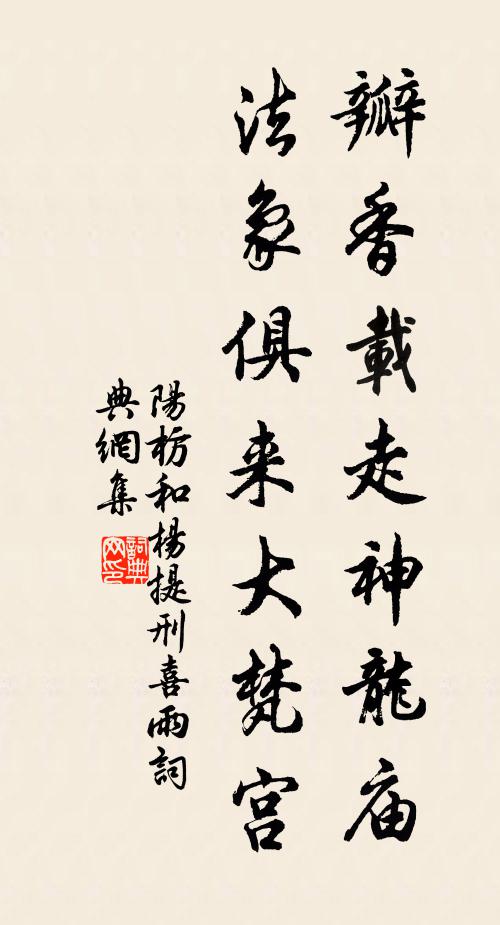 瓣香載走神龍庙
法象俱来大梵宫
陽枋和楊提刑喜雨詞
典網集
詞典网印